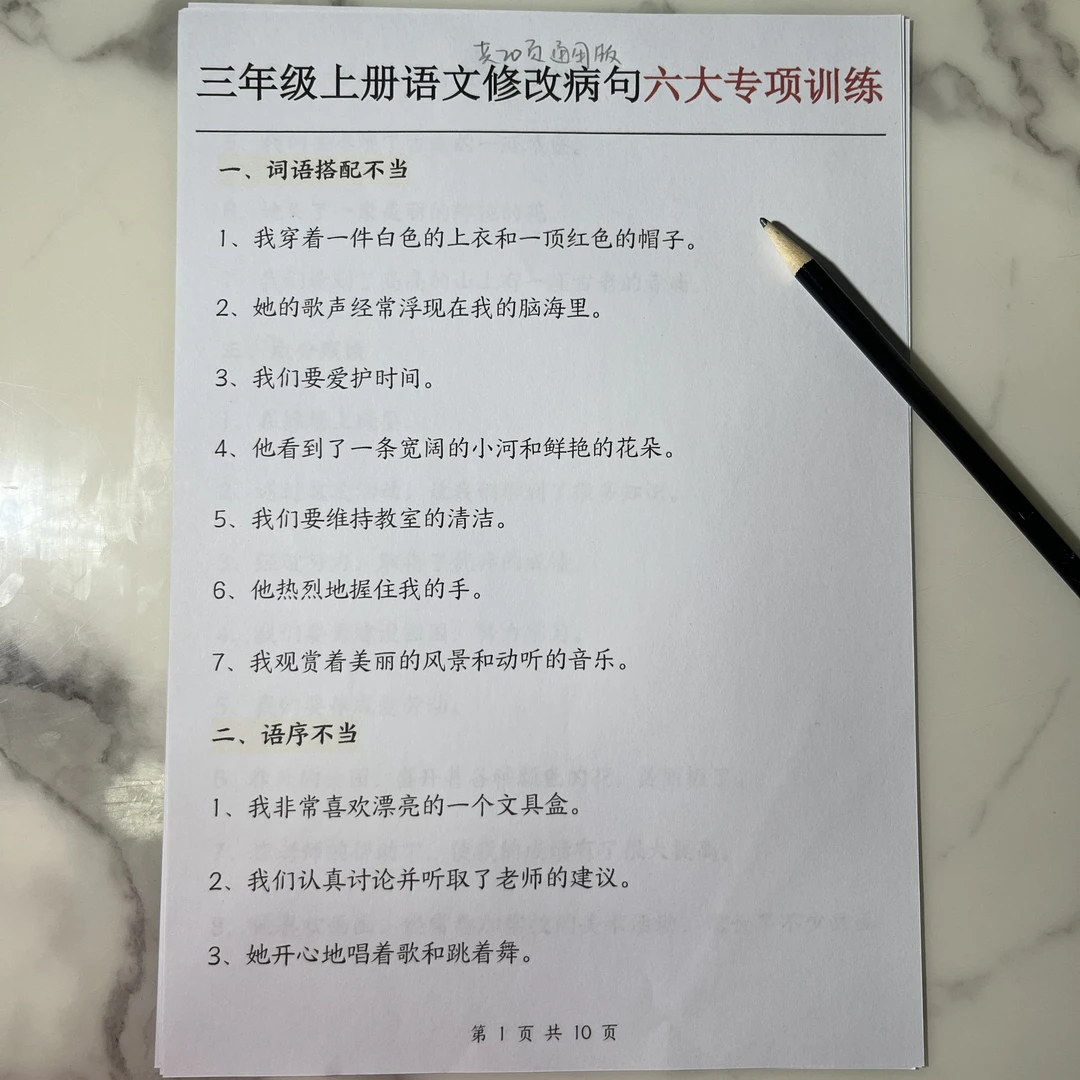 共20页通用版
三年级上册语文修改病句六大专项训练
一、词语搭配不当
1、我穿着一件白色的上衣和一顶红色的帽子。
2、她的歌声经常浮现在我的脑海里。
3、我们要爱护时间。
4、他看到了一条宽阔的小河和鲜艳的花朵。
5、我们要维持教室的清洁。
6、他热烈地握住我的手。
7、我观赏着美丽的风景和动听的音乐。
二、语序不当
1、我非常喜欢漂亮的一个文具盒。
2、我们认真讨论并听取了老师的建议。
3、她开心地唱着歌和跳着舞。
第 1 页 共 10 页